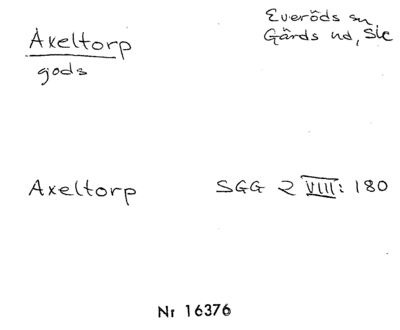 Axeltorp
gods
Everöds sn
Gärds hd, Skå
Axeltorp SGG 2 VIII: 180
Nr 16376